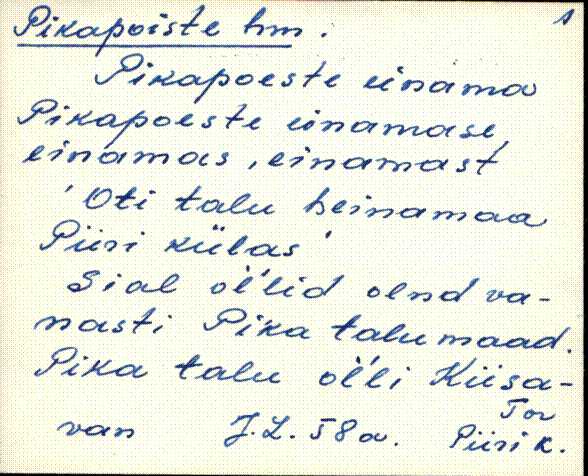 Pikapoiste hm. 1
Pikapoeste einama
Pikapoeste einamase,
einamas, einamast
'Oti talu heinamaa
Piiri külas'
Sial õĺlid olnd va-
nasti Pika talu maad.
Pika talu õĺli Kiisa-
van J.L. 58 a. Tor
Piiri k.